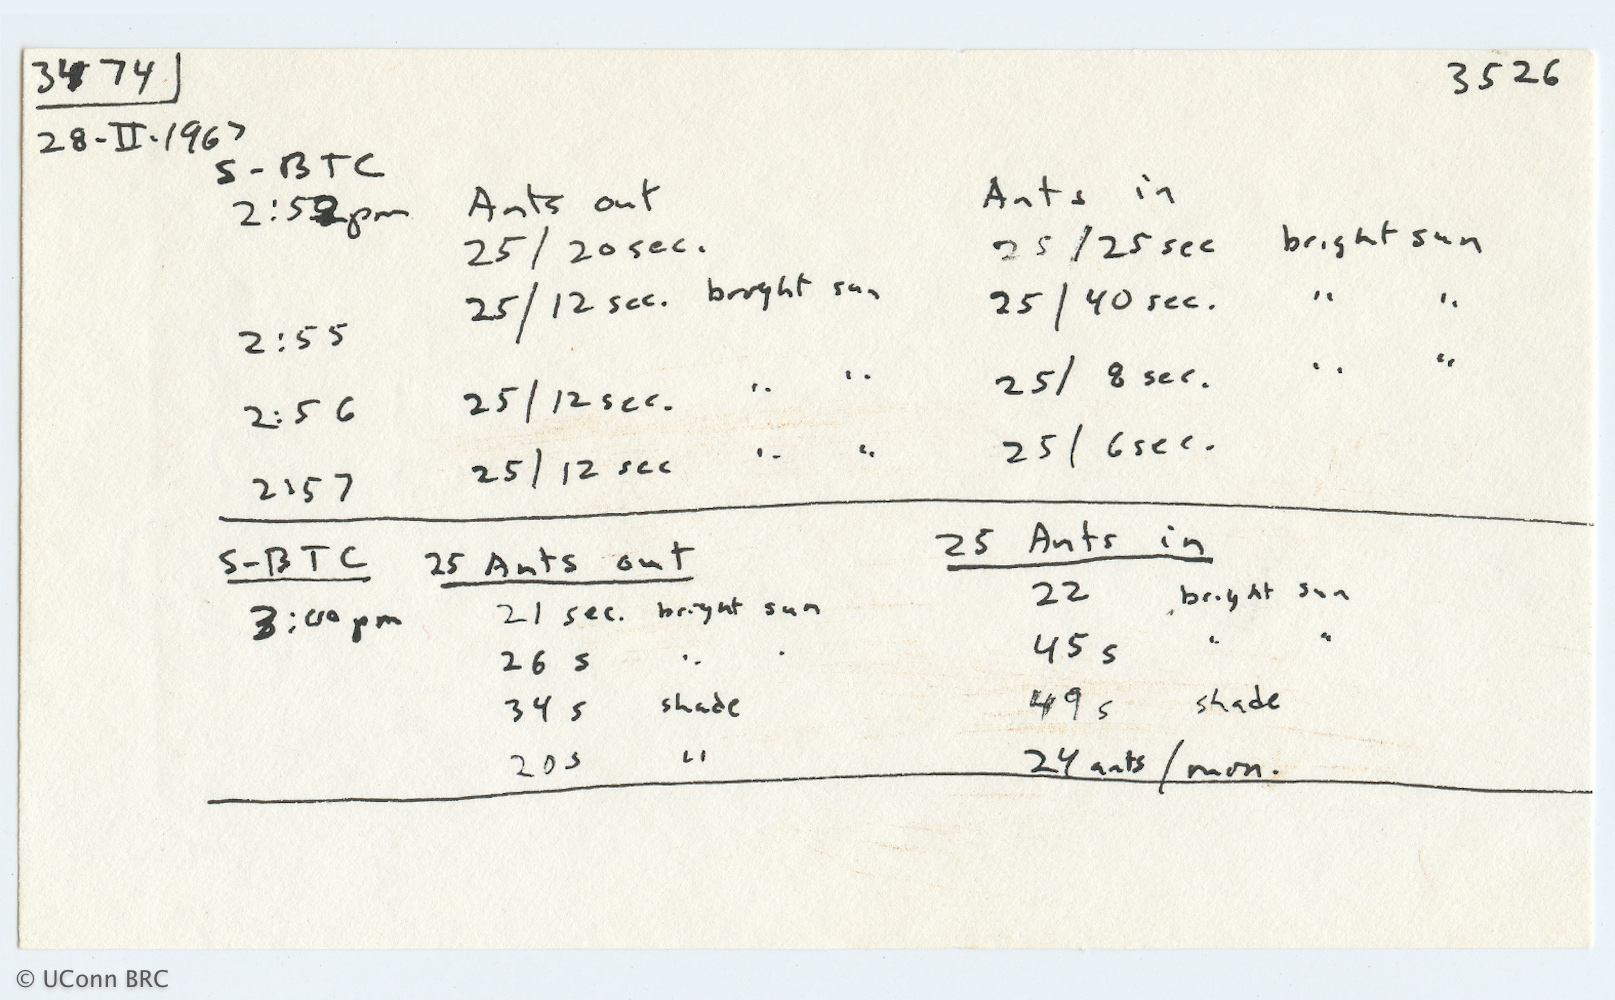 3474 3526
28-II-1967
S-BTC
2:52pm Ants out Ants in
25/20sec. 25/25sec bright sun
25/12 sec. bright sun 25/40 sec. " "
2:55
25/ 8 sec. " "
2:56 25/12sec. " "
25/ 6sec.
2:57 25/12 sec " "
S-BTC 25 Ants out 25 Ants in
3:00pm 21 sec. bright sun 22 bright sun
26 s " " 45 s " "
34 s shade 49 s shade
20s " 24 ants/min.
© UConn BRC